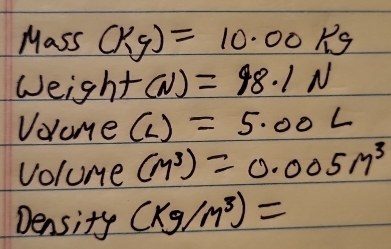 Mass (Kg) = 10.00 Kg
Weight (N) = 98.1 N
Volume (L) = 5.00 L
Volume (M³) = 0.005 M³
Density (Kg/m³) =